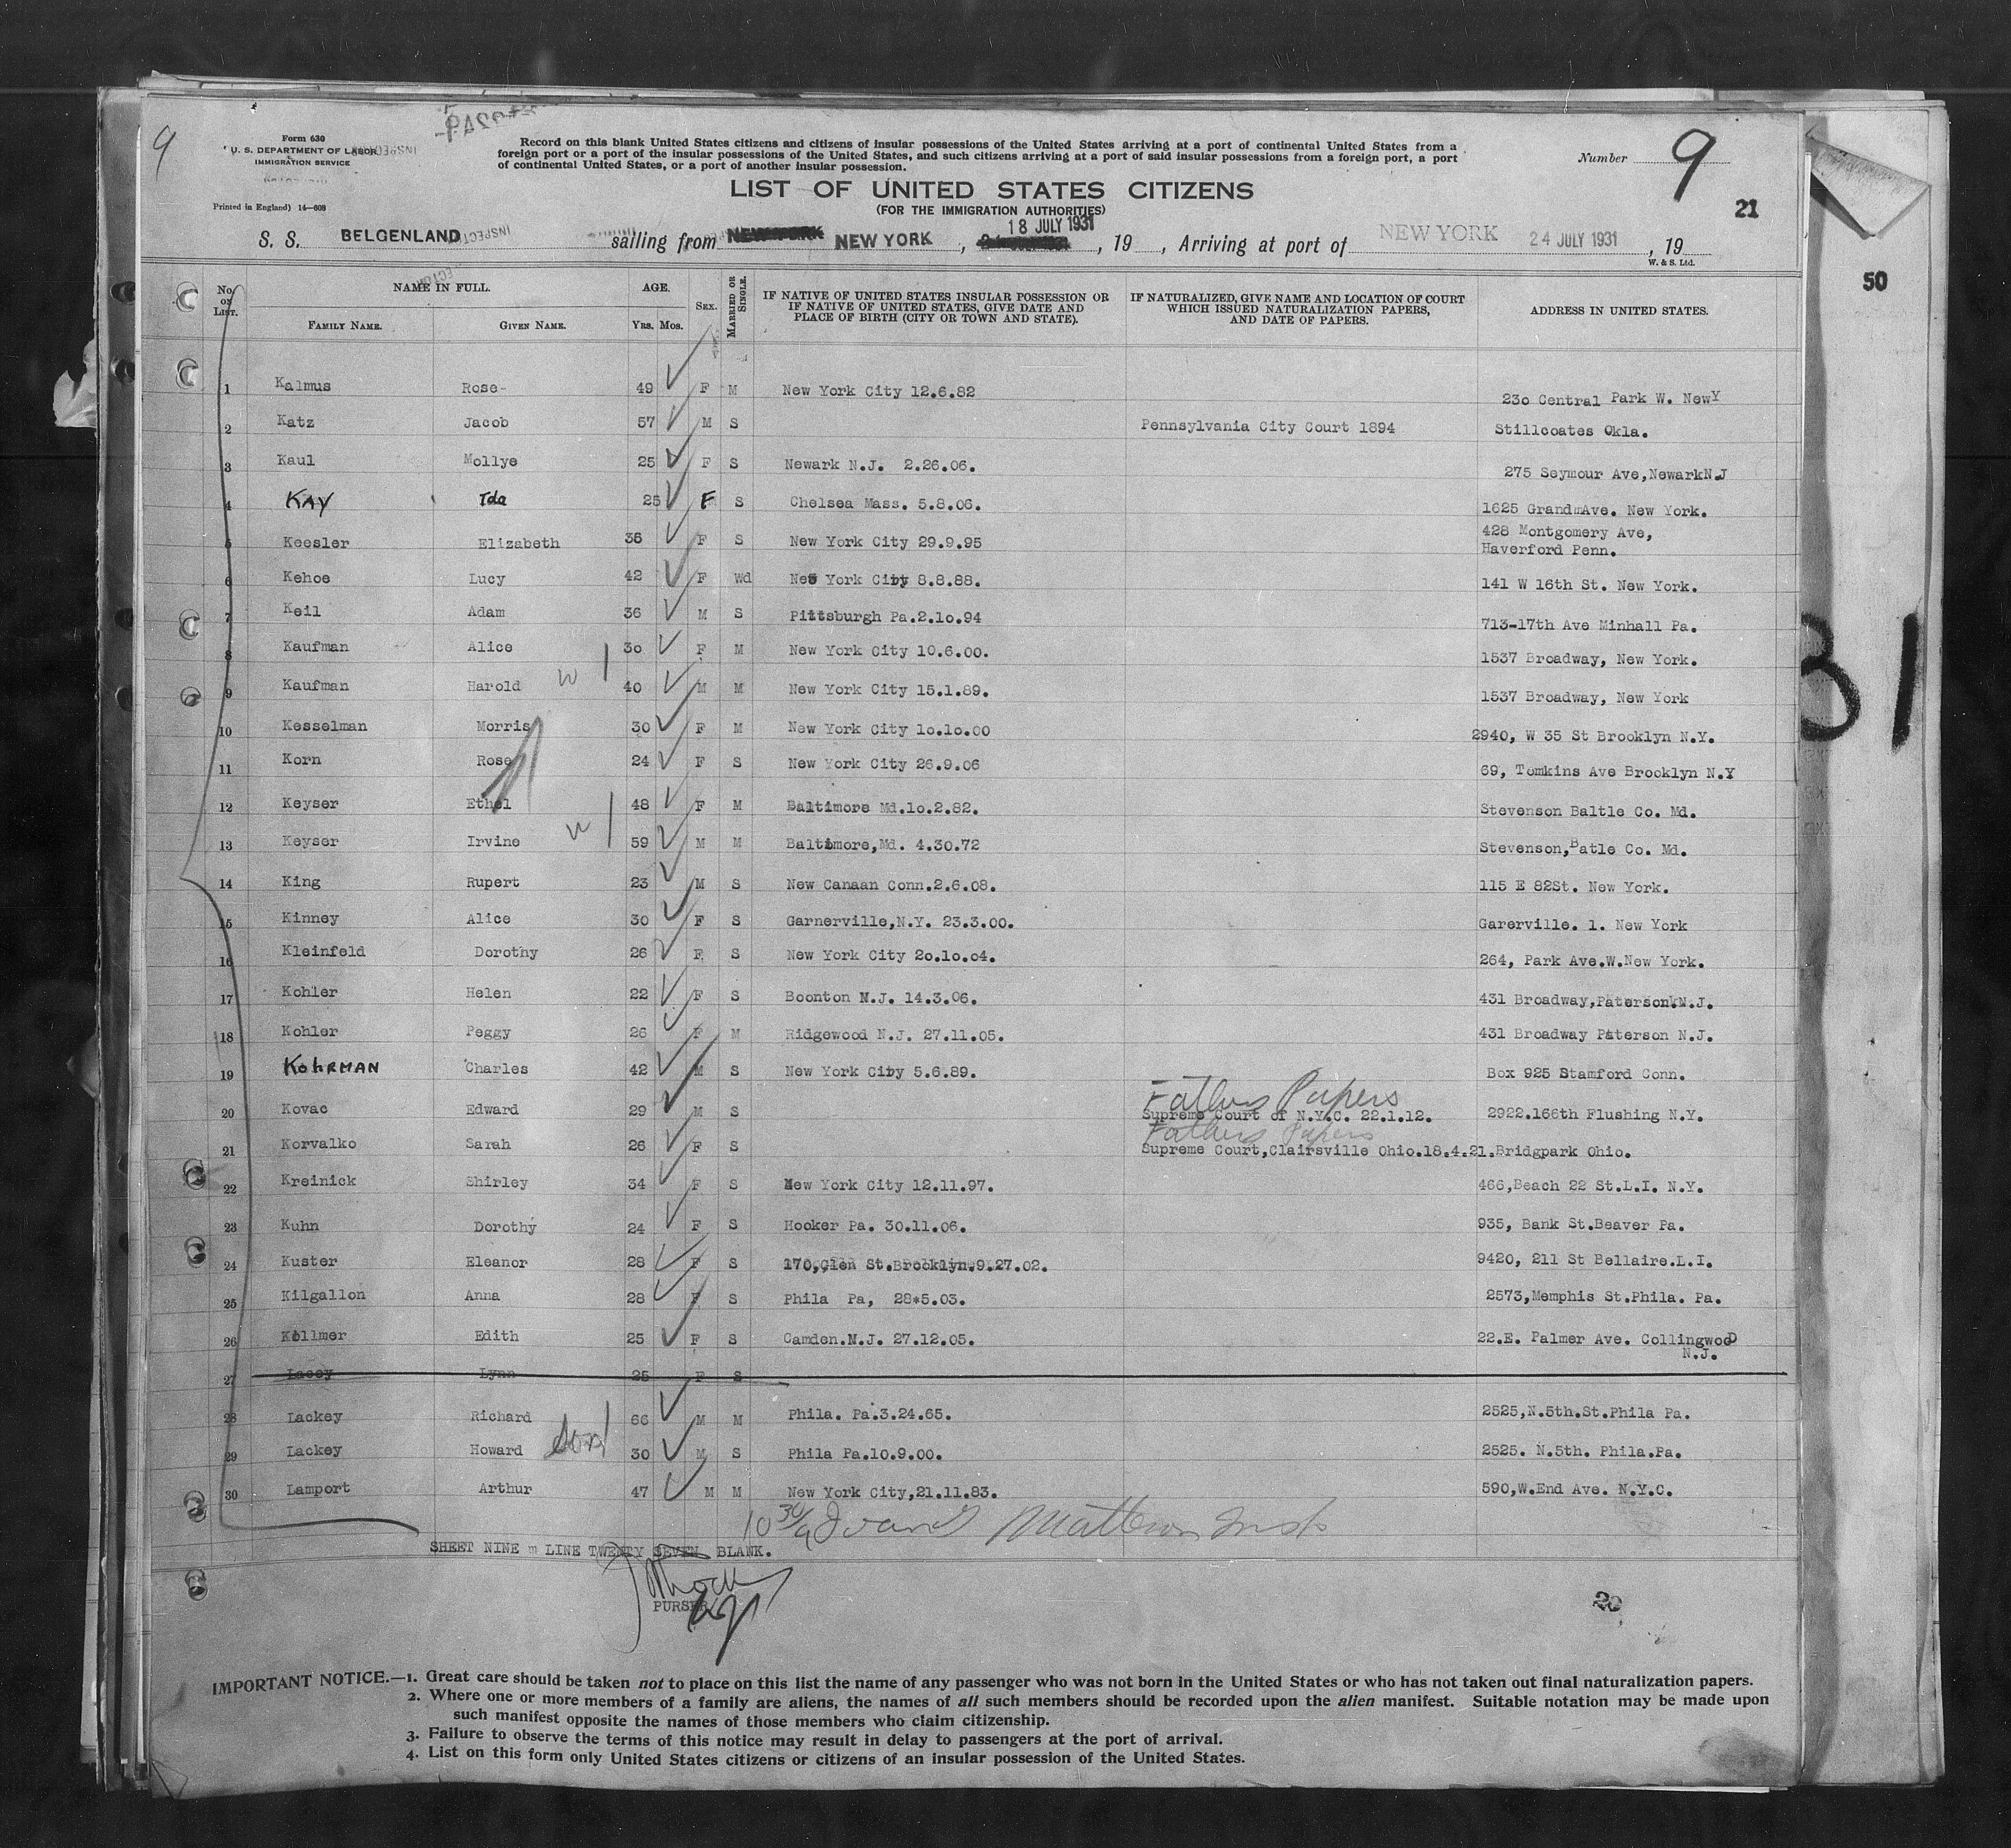 9
Form 630
U. S. DEPARTMENT OF LABOR
IMMIGRATION SERVICE
Printed in England) 14—608
Record on this blank United States citizens and citizens of insular possessions of the United States arriving at a port of continental United States from a
foreign port or a port of the insular possessions of the United States, and such citizens arriving at a port of said insular possessions from a foreign port, a port
of continental United States, or a port of another insular possession.
Number 9
LIST OF UNITED STATES CITIZENS
(FOR THE IMMIGRATION AUTHORITIES)
21
S. S. BELGENLAND sailing from NEW YORK NEW YORK, 18 JULY 1931, 19, Arriving at port of NEW YORK 24 JULY 1931, 19
W. & S. Ltd.
50
No. on List. NAME IN FULL. AGE. SEX. MARRIED OR SINGLE. IF NATIVE OF UNITED STATES INSULAR POSSESSION OR IF NATIVE OF UNITED STATES, GIVE DATE AND PLACE OF BIRTH (CITY OR TOWN AND STATE). IF NATURALIZED, GIVE NAME AND LOCATION OF COURT WHICH ISSUED NATURALIZATION PAPERS, AND DATE OF PAPERS. ADDRESS IN UNITED STATES.
FAMILY NAME. GIVEN NAME. Yrs. Mos.
1 Kalmus Rose- 49 F M New York City 12.6.82 23o Central Park W. NewY
2 Katz Jacob 57 M S Pennsylvania City Court 1894 Stillcoates Okla.
3 Kaul Mollye 25 F S Newark N.J. 2.26.06. 275 Seymour Ave,NewarkN.J
4 KAY Ida 25 F S Chelsea Mass. 5.8.06. 1625 GrandmAve. New York.
5 Keesler Elizabeth 36 F S New York City 29.9.95 428 Montgomery Ave,
Haverford Penn.
6 Kehoe Lucy 42 F Wd New York City 8.8.88. 141 W 16th St. New York.
7 Keil Adam 36 M S Pittsburgh Pa.2.1o.94 713-17th Ave Minhall Pa.
8 Kaufman Alice 3o F M New York City 10.6.00. 1537 Broadway, New York.
9 Kaufman Harold W 40 M M New York City 15.1.89. 1537 Broadway, New York
10 Kesselman Morris 30 F M New York City 1o.1o.00 2940, W 35 St Brooklyn N.Y.
11 Korn Rose 24 F S New York City 26.9.06 69, Tomkins Ave Brooklyn N.Y
12 Keyser Ethel 48 F M Baltimore Md.1o.2.82. Stevenson Baltle Co. Md.
13 Keyser Irvine W 59 M M Baltimore,Md. 4.30.72 Stevenson,Batle Co. Md.
14 King Rupert 23 M S New Canaan Conn.2.6.08. 115 E 82St. New York.
15 Kinney Alice 30 F S Garnerville,N.Y. 23.3.00. Garerville. 1. New York
16 Kleinfeld Dorothy 26 F S New York City 2o.1o.o4. 264, Park Ave.W.New York.
17 Kohler Helen 22 F S Boonton N.J. 14.3.06. 431 Broadway,Paterson.N.J.
18 Kohler Peggy 26 F M Ridgewood N.J. 27.11.05. 431 Broadway Paterson N.J.
19 KohRMAN Charles 42 M S New York City 5.6.89. Box 925 Stamford Conn.
Fathers Papers
20 Kovac Edward 29 M S Supreme Court of N.Y.C. 22.1.12. 2922.166th Flushing N.Y.
Fathers Papers
21 Korvalko Sarah 26 F S Supreme Court,Clairsville Ohio.18.4.21.Bridgpark Ohio.
22 Kreinick Shirley 34 F S New York City 12.11.97. 466,Beach 22 St.L.I. N.Y.
23 Kuhn Dorothy 24 F S Hooker Pa. 30.11.06. 935, Bank St.Beaver Pa.
24 Kuster Eleanor 28 F S 170,Glen St.Brooklyn.9.27.02. 9420, 211 St Bellaire.L.I.
25 Kilgallon Anna 28 F S Phila Pa, 28*5.03. 2573,Memphis St.Phila. Pa.
26 Kollmer Edith 25 F S Camden.N.J. 27.12.05. 22.E. Palmer Ave. CollingwooD
N.J.
27 Lacey Lynn 25 F S
28 Lackey Richard 66 M M Phila. Pa.3.24.65. 2525,N.5th.St.Phila Pa.
29 Lackey Howard son 30 M S Phila Pa.10.9.00. 2525. N.5th. Phila.Pa.
30 Lamport Arthur 47 M M New York City,21.11.83. 590,W.End Ave. N.Y.C.
10 30/9 Mattews Insp
SHEET NINE m LINE TWENTY SEVEN BLANK.
PURSER
20
31
IMPORTANT NOTICE.—1. Great care should be taken not to place on this list the name of any passenger who was not born in the United States or who has not taken out final naturalization papers.
2. Where one or more members of a family are aliens, the names of all such members should be recorded upon the alien manifest. Suitable notation may be made upon
such manifest opposite the names of those members who claim citizenship.
3. Failure to observe the terms of this notice may result in delay to passengers at the port of arrival.
4. List on this form only United States citizens or citizens of an insular possession of the United States.